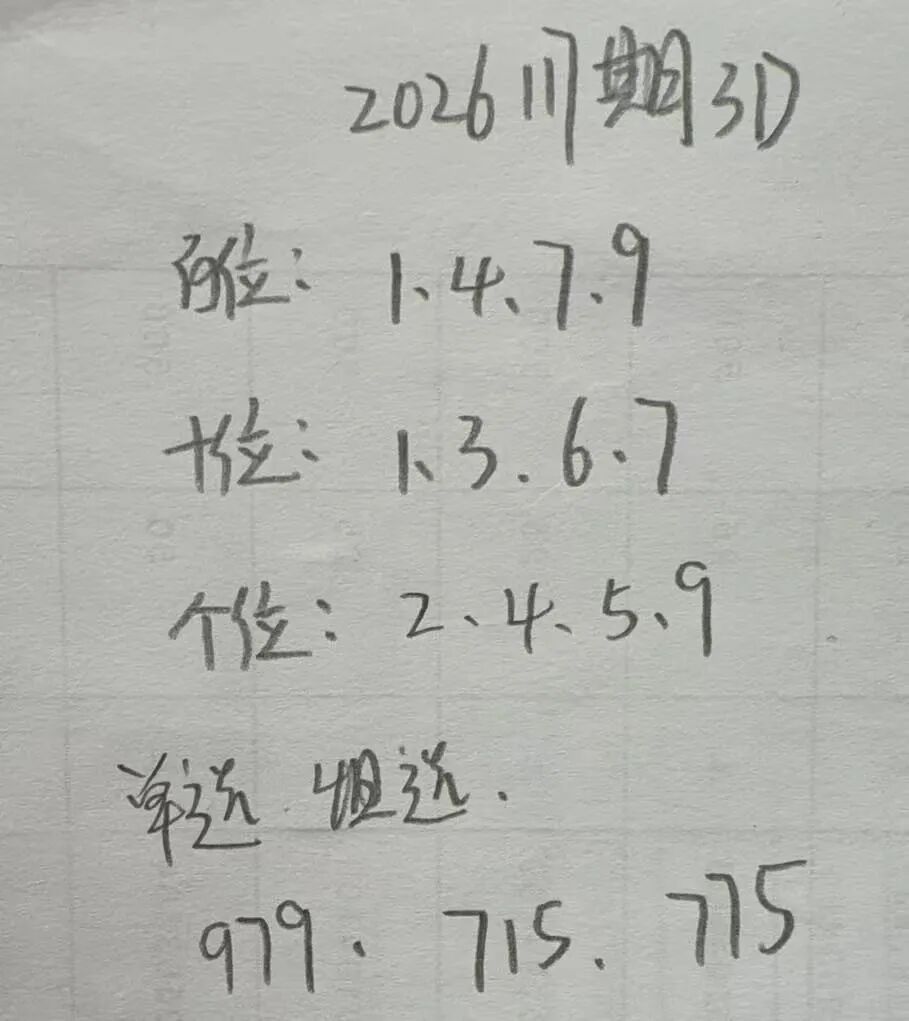 2026111期3D
百位：1、4、7、9
十位：1、3.6、7
个位：2、4、5、9
单选 组选.
979. 715. 775